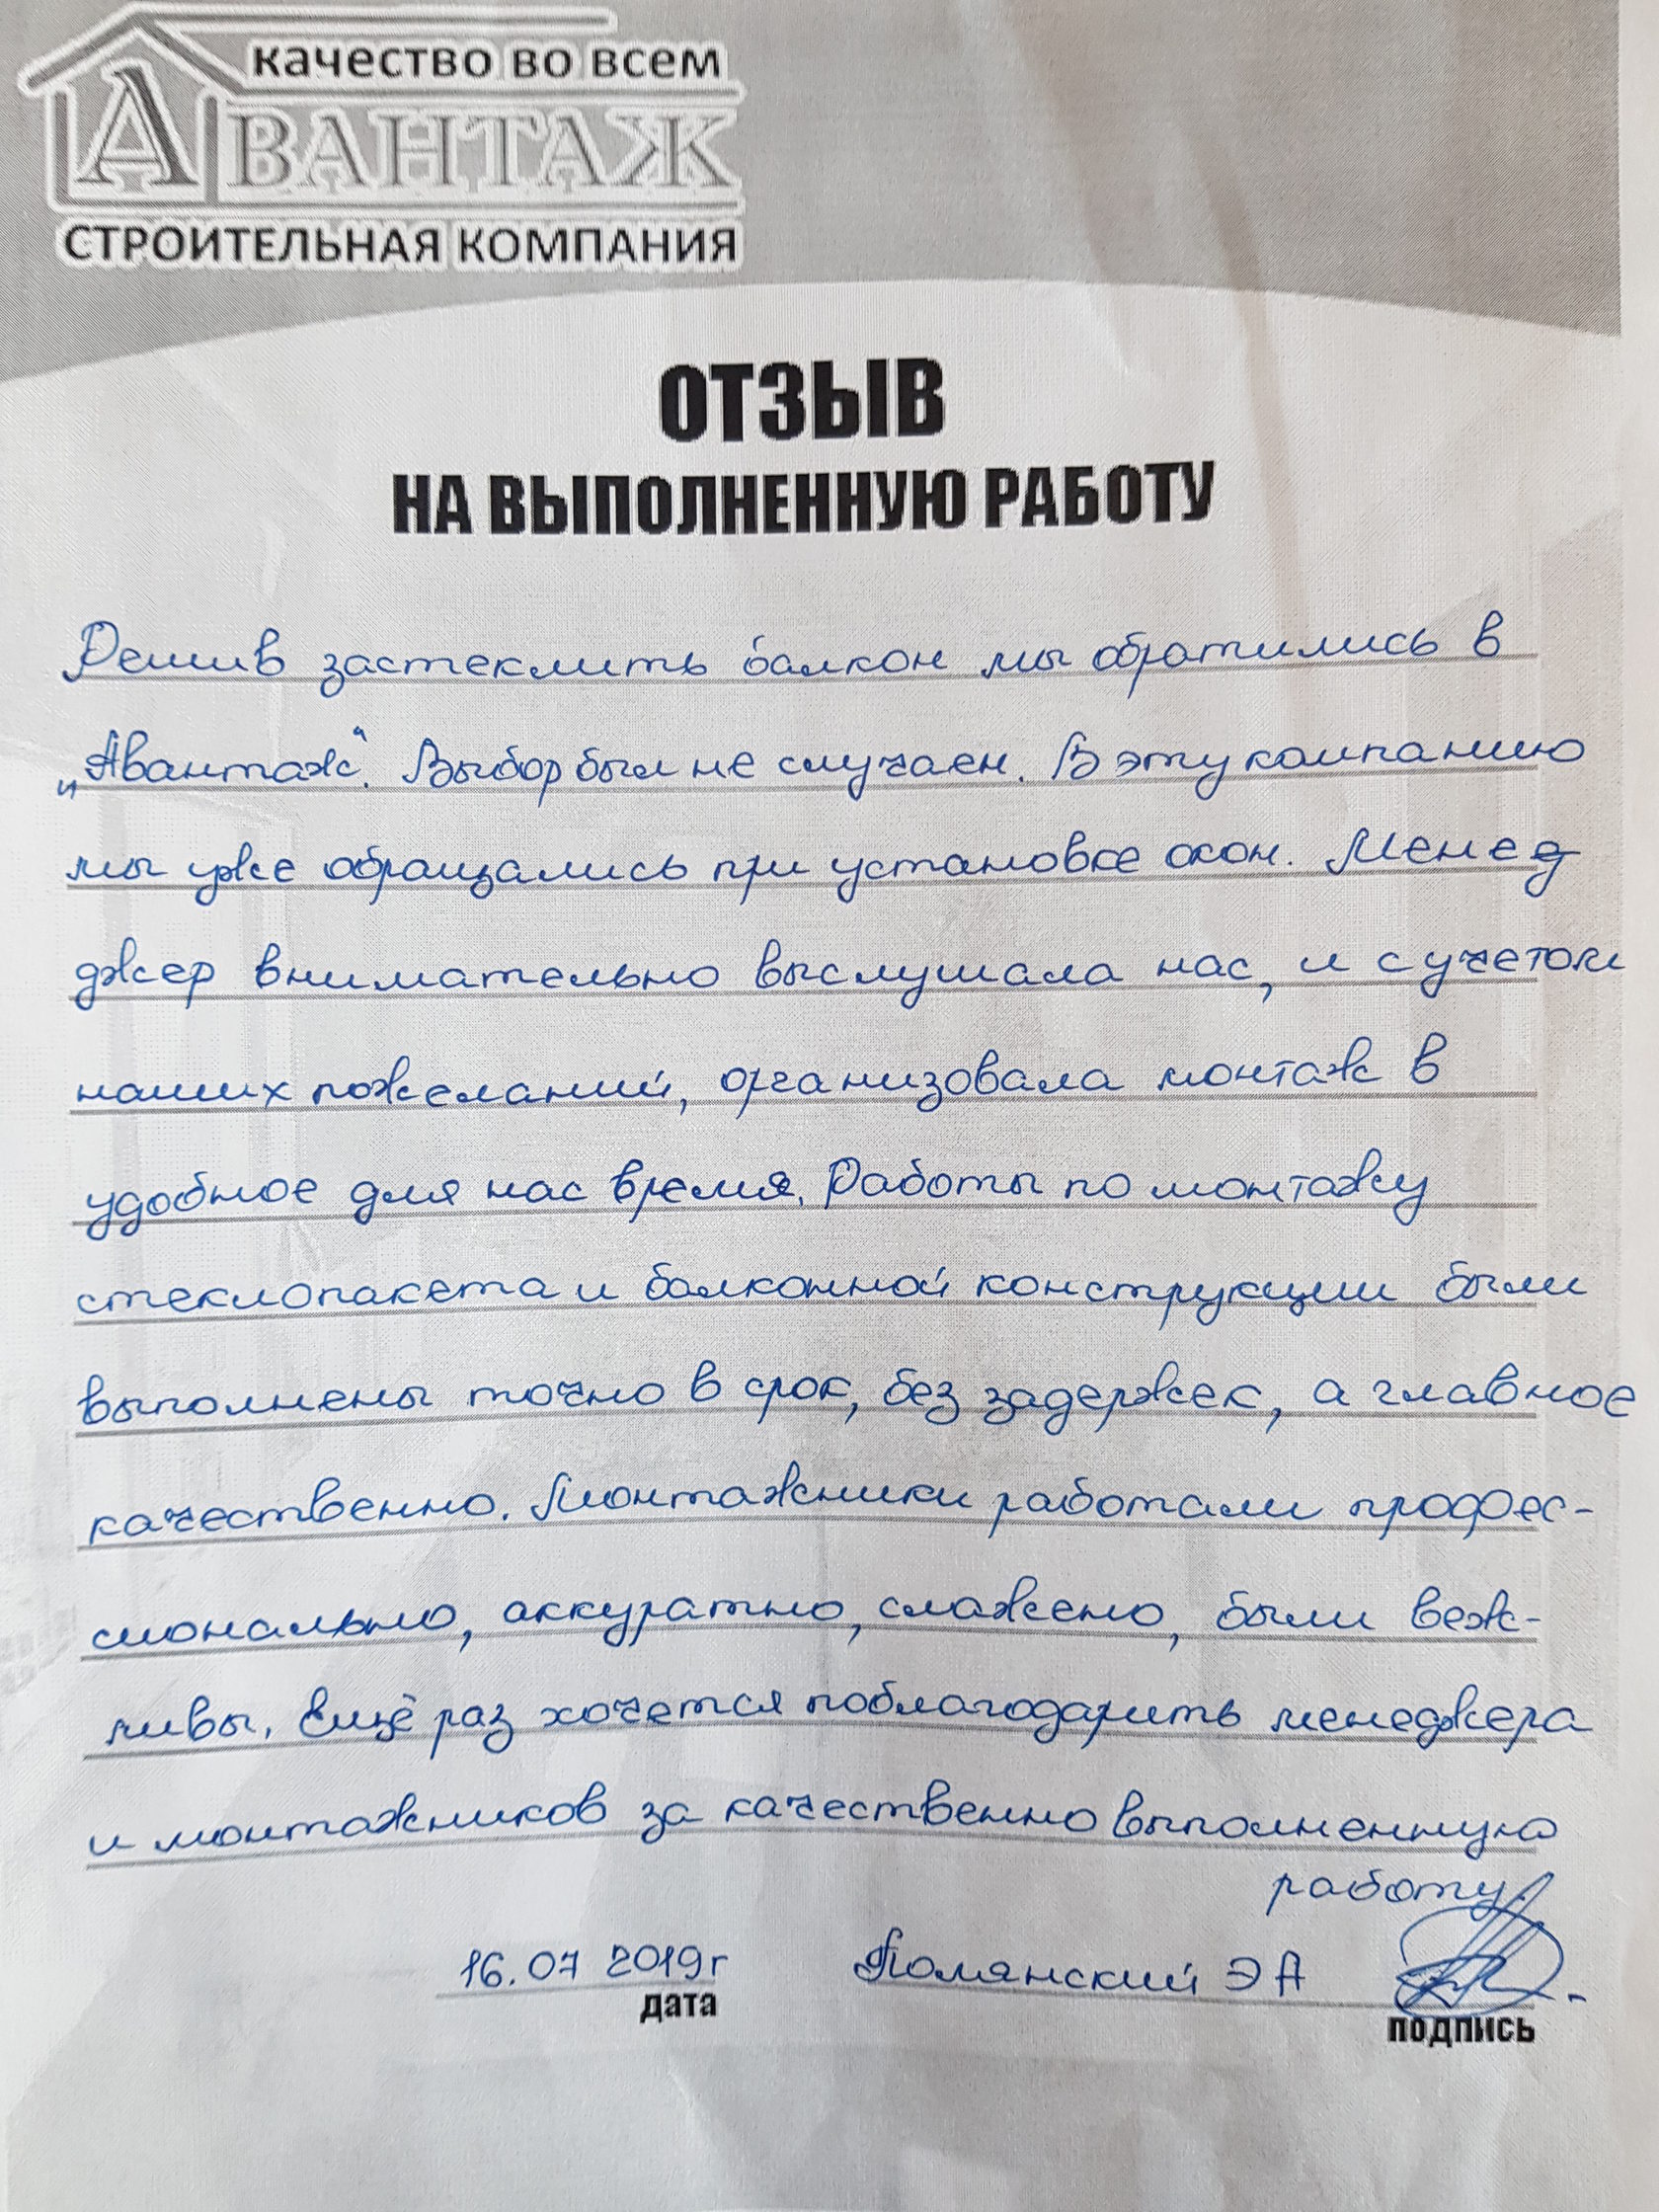 качество во всем
АВАНТАЖ
СТРОИТЕЛЬНАЯ КОМПАНИЯ
ОТЗЫВ
НА ВЫПОЛНЕННУЮ РАБОТУ
Решив застеклить балкон мы обратились в
„Авантаж“. Выбор был не случаен. В эту компанию
мы уже обращались при установке окон. Менед
джер внимательно выслушала нас, и с учетом
наших пожеланий, организовала монтаж в
удобное для нас время. Работы по монтажу
стеклопакета и балконной конструкции были
выполнены точно в срок, без задержек, а главное
качественно. Монтажники работали профес-
сионально, аккуратно, слажено, были веж-
ливы. Ещё раз хочется поблагодарить менеджера
и монтажников за качественно выполненную
работу.
16.07 2019г Полянский Э А
дата
подпись